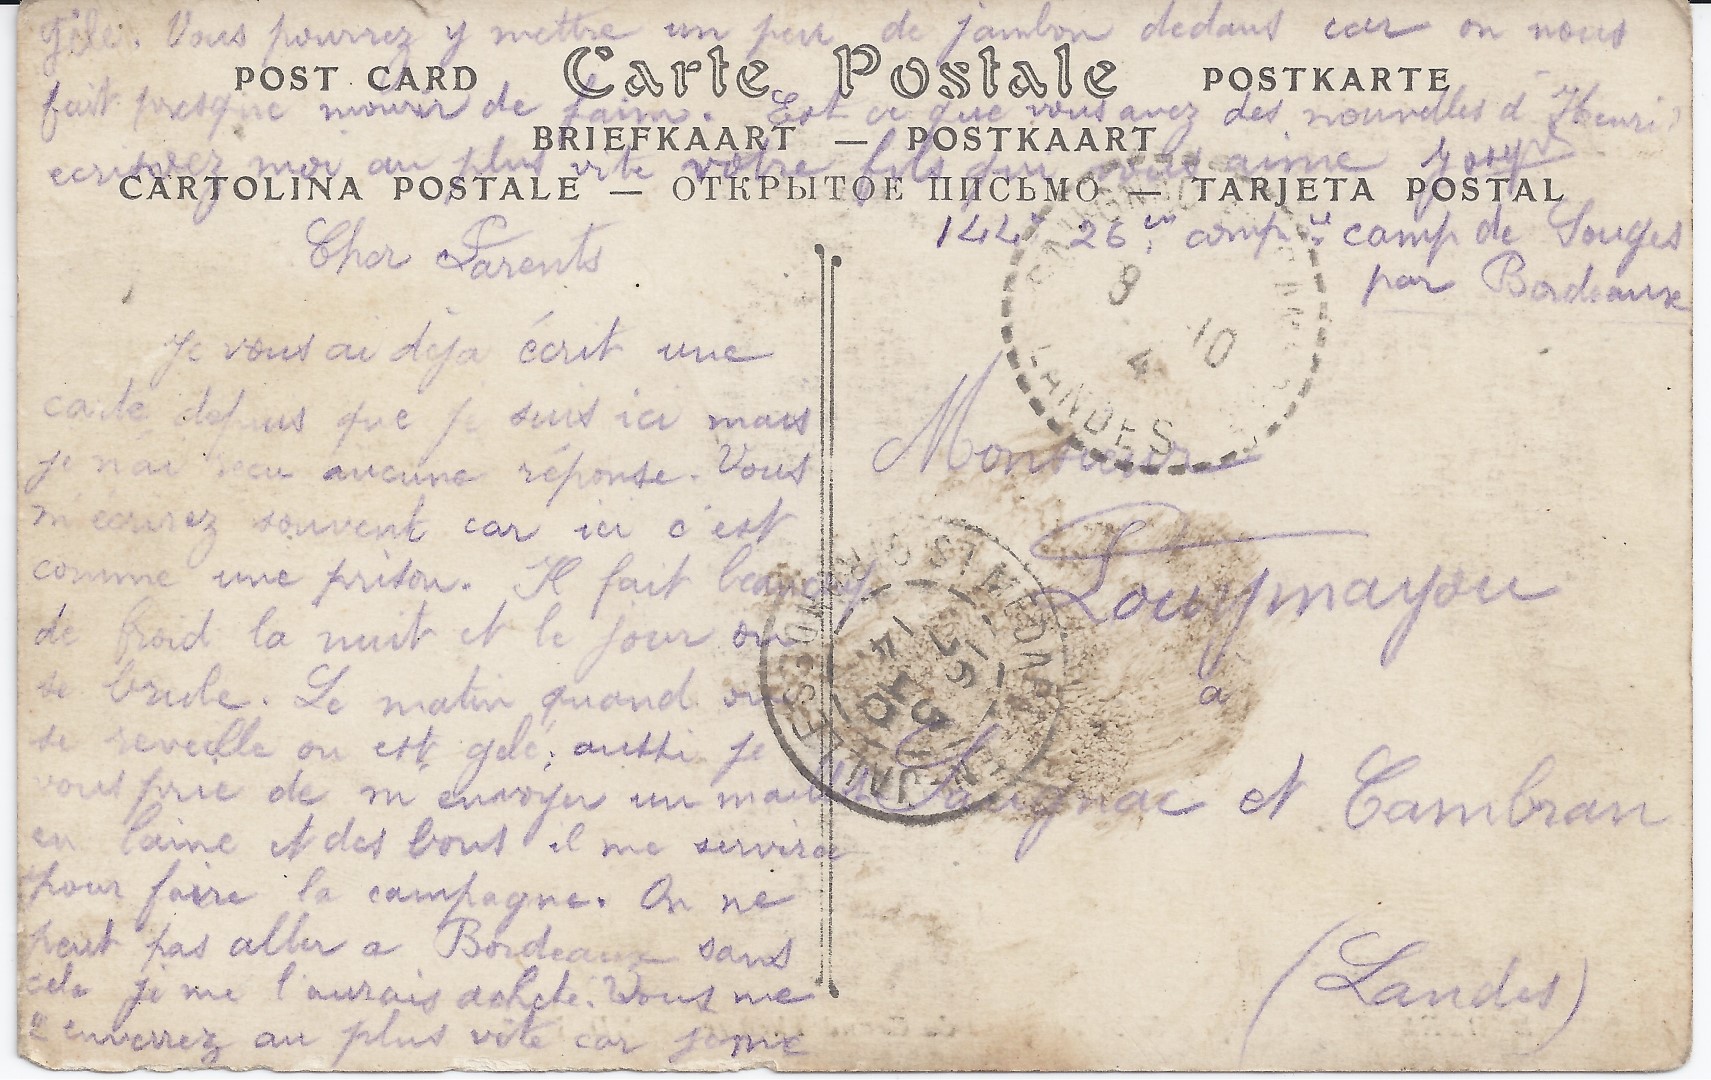 gèle. Vous pourrez y mettre un peu de jambon dedans car on nous
POST CARD Carte Postale POSTKARTE
fait presque mourir de faim. Est ce que vous avez des nouvelles d'Henri?
BRIEFKAART — POSTKAART
ecrivez moi au plus vite votre fils qui vous aime
CARTOLINA POSTALE — ОТКРЫТОЕ ПИСЬМО — TARJETA POSTAL
144e 26em compie camp de Souges
par Bordeaux
Cher Parents
Je vous ai deja écrit une
carte depuis que je suis ici mais
je n'ai recu aucune réponse. Vous
m'ecrirez souvent car ici c'est
comme une prison. Il fait beaucoup
de froid la nuit et le jour on
se brule. Le matin quand on
se reveille on est gelé; aussi je
vous prie de m'envoyer un maillot
en laine et des bous il me servira
pour faire la campagne. On ne
peut pas aller a Bordeaux sans
cela je me l'aurais acheté. Vous me
l'enverrez au plus vite car je me
8 10
4
LANDES
Monsieur
Lourymayou
à
Saugnac et Cambran
(Landes)
ST MEDARD
14
GIRONDE